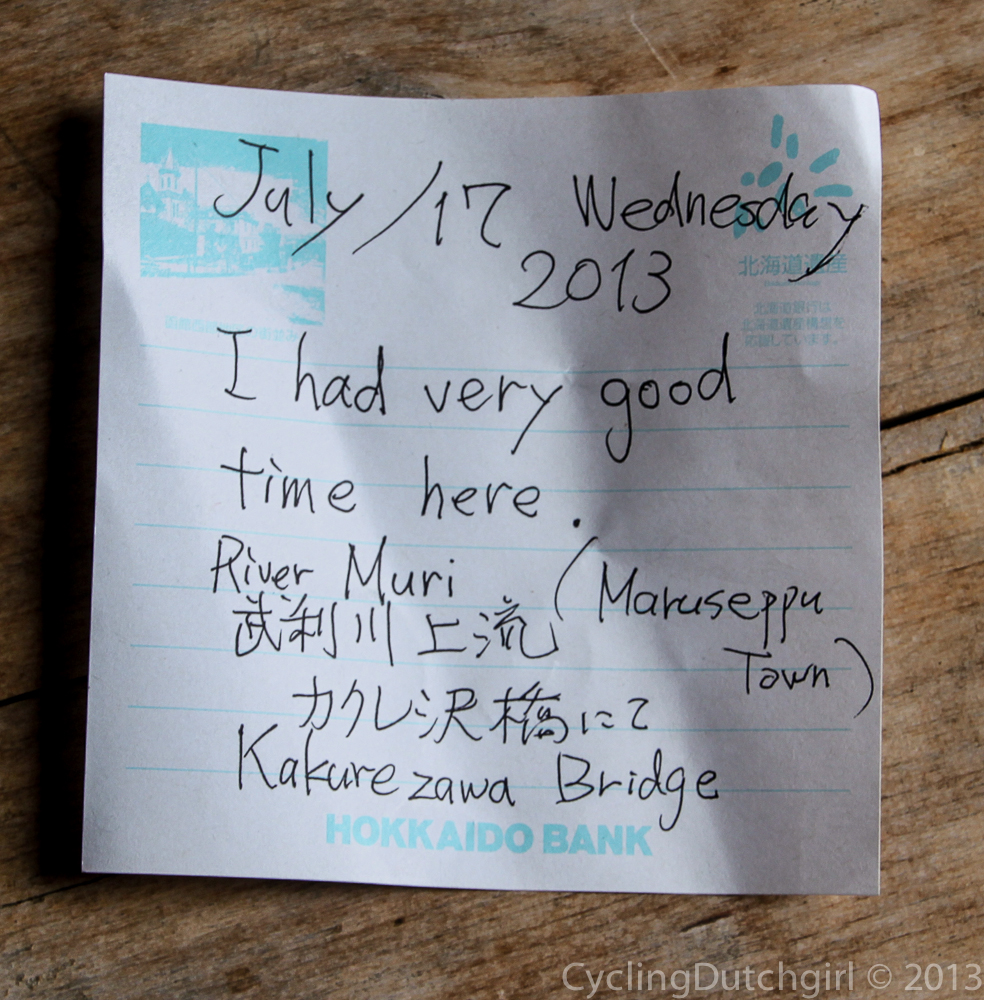 July/17 Wednesday
2013
北海道遺産
北海道銀行は
北海道遺産構想を
応援しています。
I had very good
time here.
River Muri (Maruseppu
Town)
武利川上流
カクレ沢橋にて
Kakurezawa Bridge
HOKKAIDO BANK
CyclingDutchgirl © 2013